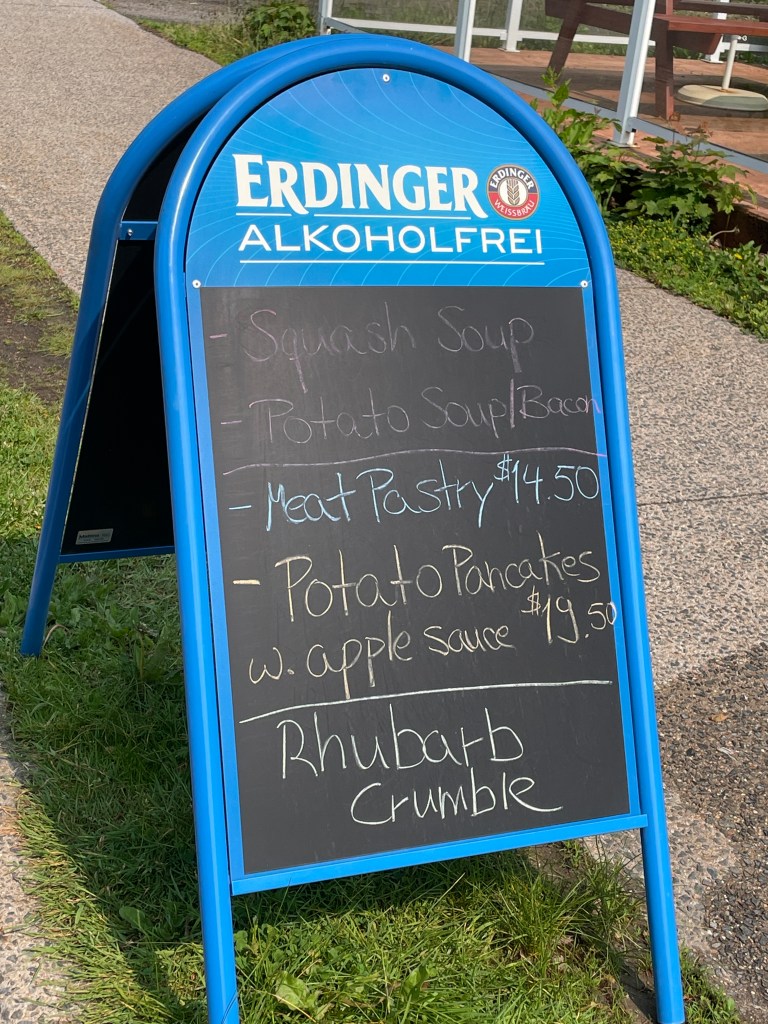 ERDINGER
ERDINGER
WEISSBRÄU
ALKOHOLFREI
- Squash Soup
- Potato Soup/Bacon
- Meat Pastry $14.50
- Potato Pancakes
w. apple sauce $19.50
Rhubarb
Crumble